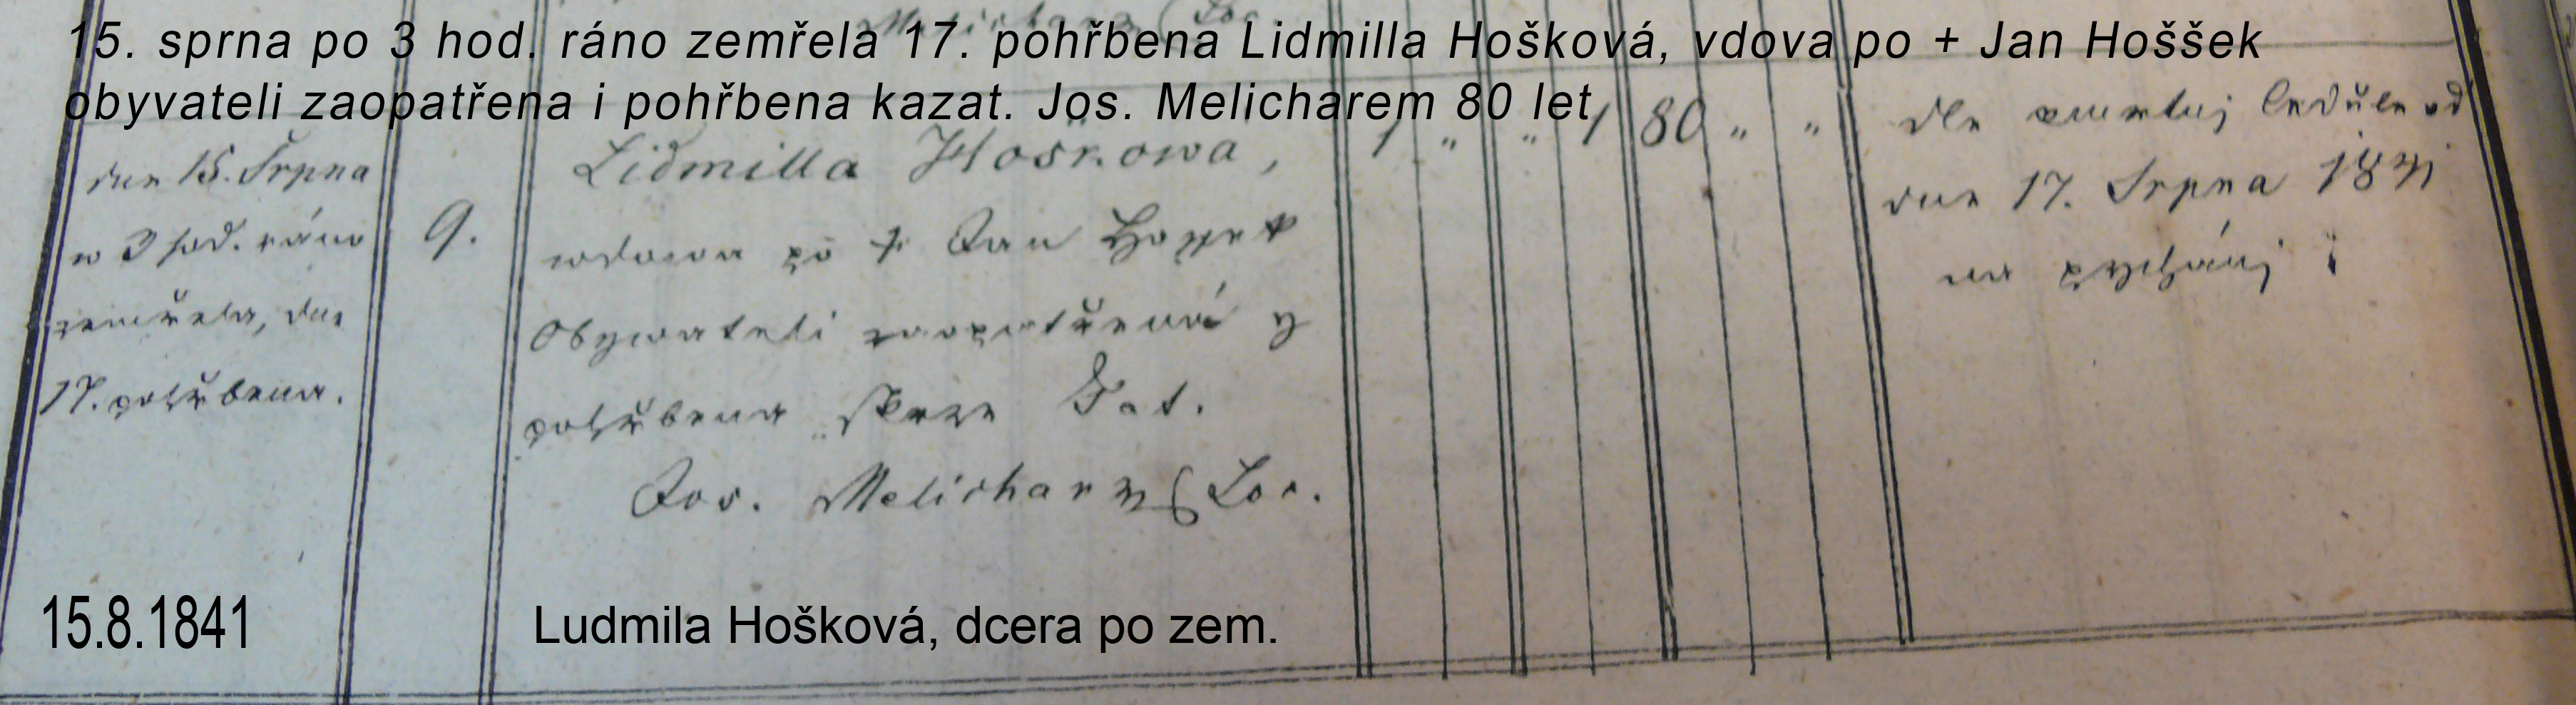 15. sprna po 3 hod. ráno zemřela 17. pohřbena Lidmilla Hošková, vdova po + Jan Hoššek
obyvateli zaopatřena i pohřbena kazat. Jos. Melicharem 80 let
dne 15. Srpna
w 3 hod. ráno
zemřela, dne
17. pohřbena.
9.
Lidmilla Hoškowa,
wdowa po † Jan Hoššek
Obywateli zaopatřená y
pohřbena skrze
Jos. Melichar Loc.
1 " " 1 80 " "
dle cedule od
dne 17. Srpna 1841
na
15.8.1841
Ludmila Hošková, dcera po zem.